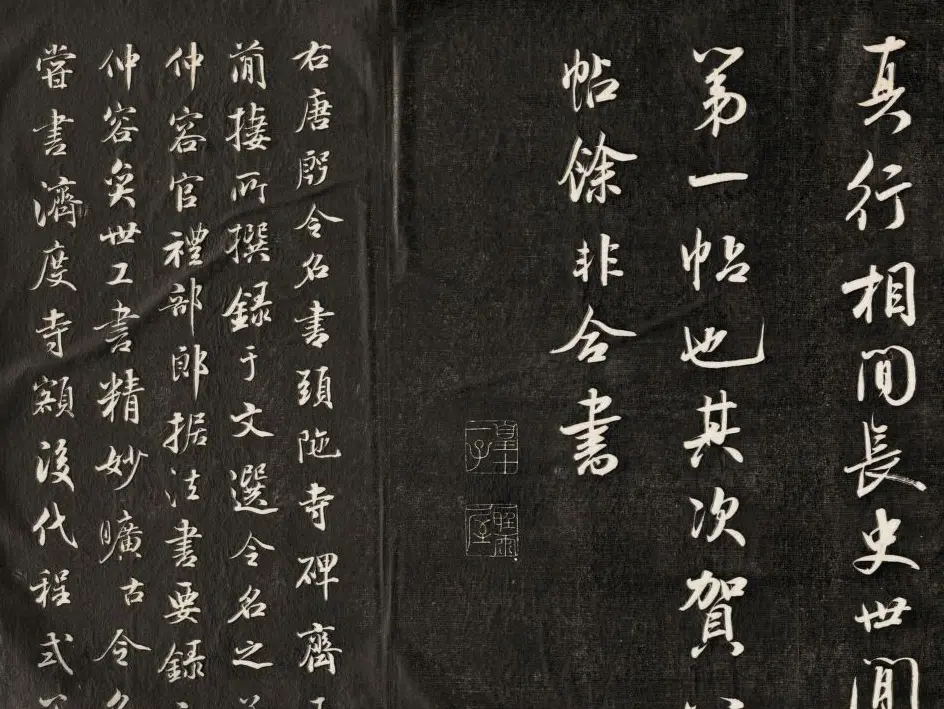 真行相閒長史世閒
第一帖也其次賀
帖餘非合書
右唐殷令名書頭陁寺碑齊
蕳捿所撰録于文選令名之
仲容官禮部郎据法書要録
仲容奕世工書精妙曠古令
嘗書濟度寺額後代程式